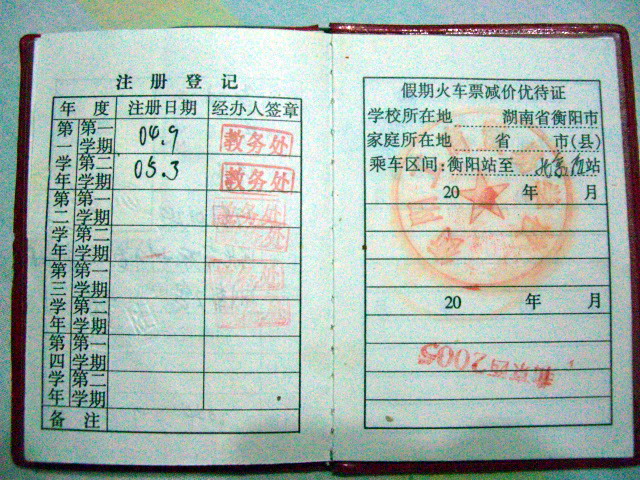 注册登记
年 度 注册日期 经办人签章
第一学年 第一学期 04.9 教务处
第二学期 05.3 教务处
第二学年 第一学期 教务处
第二学期
第三学年 第一学期
第二学期
第四学年 第一学期
第二学期
备 注
假期火车票减价优待证
学校所在地 湖南省衡阳市
家庭所在地 省 市(县)
乘车区间:衡阳站至 站
20 年 月
20 年 月
北京西2005